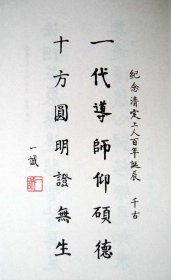 紀念清定上人百年誕辰 千古
一代導師仰碩德
十方圓明證無生
一誠